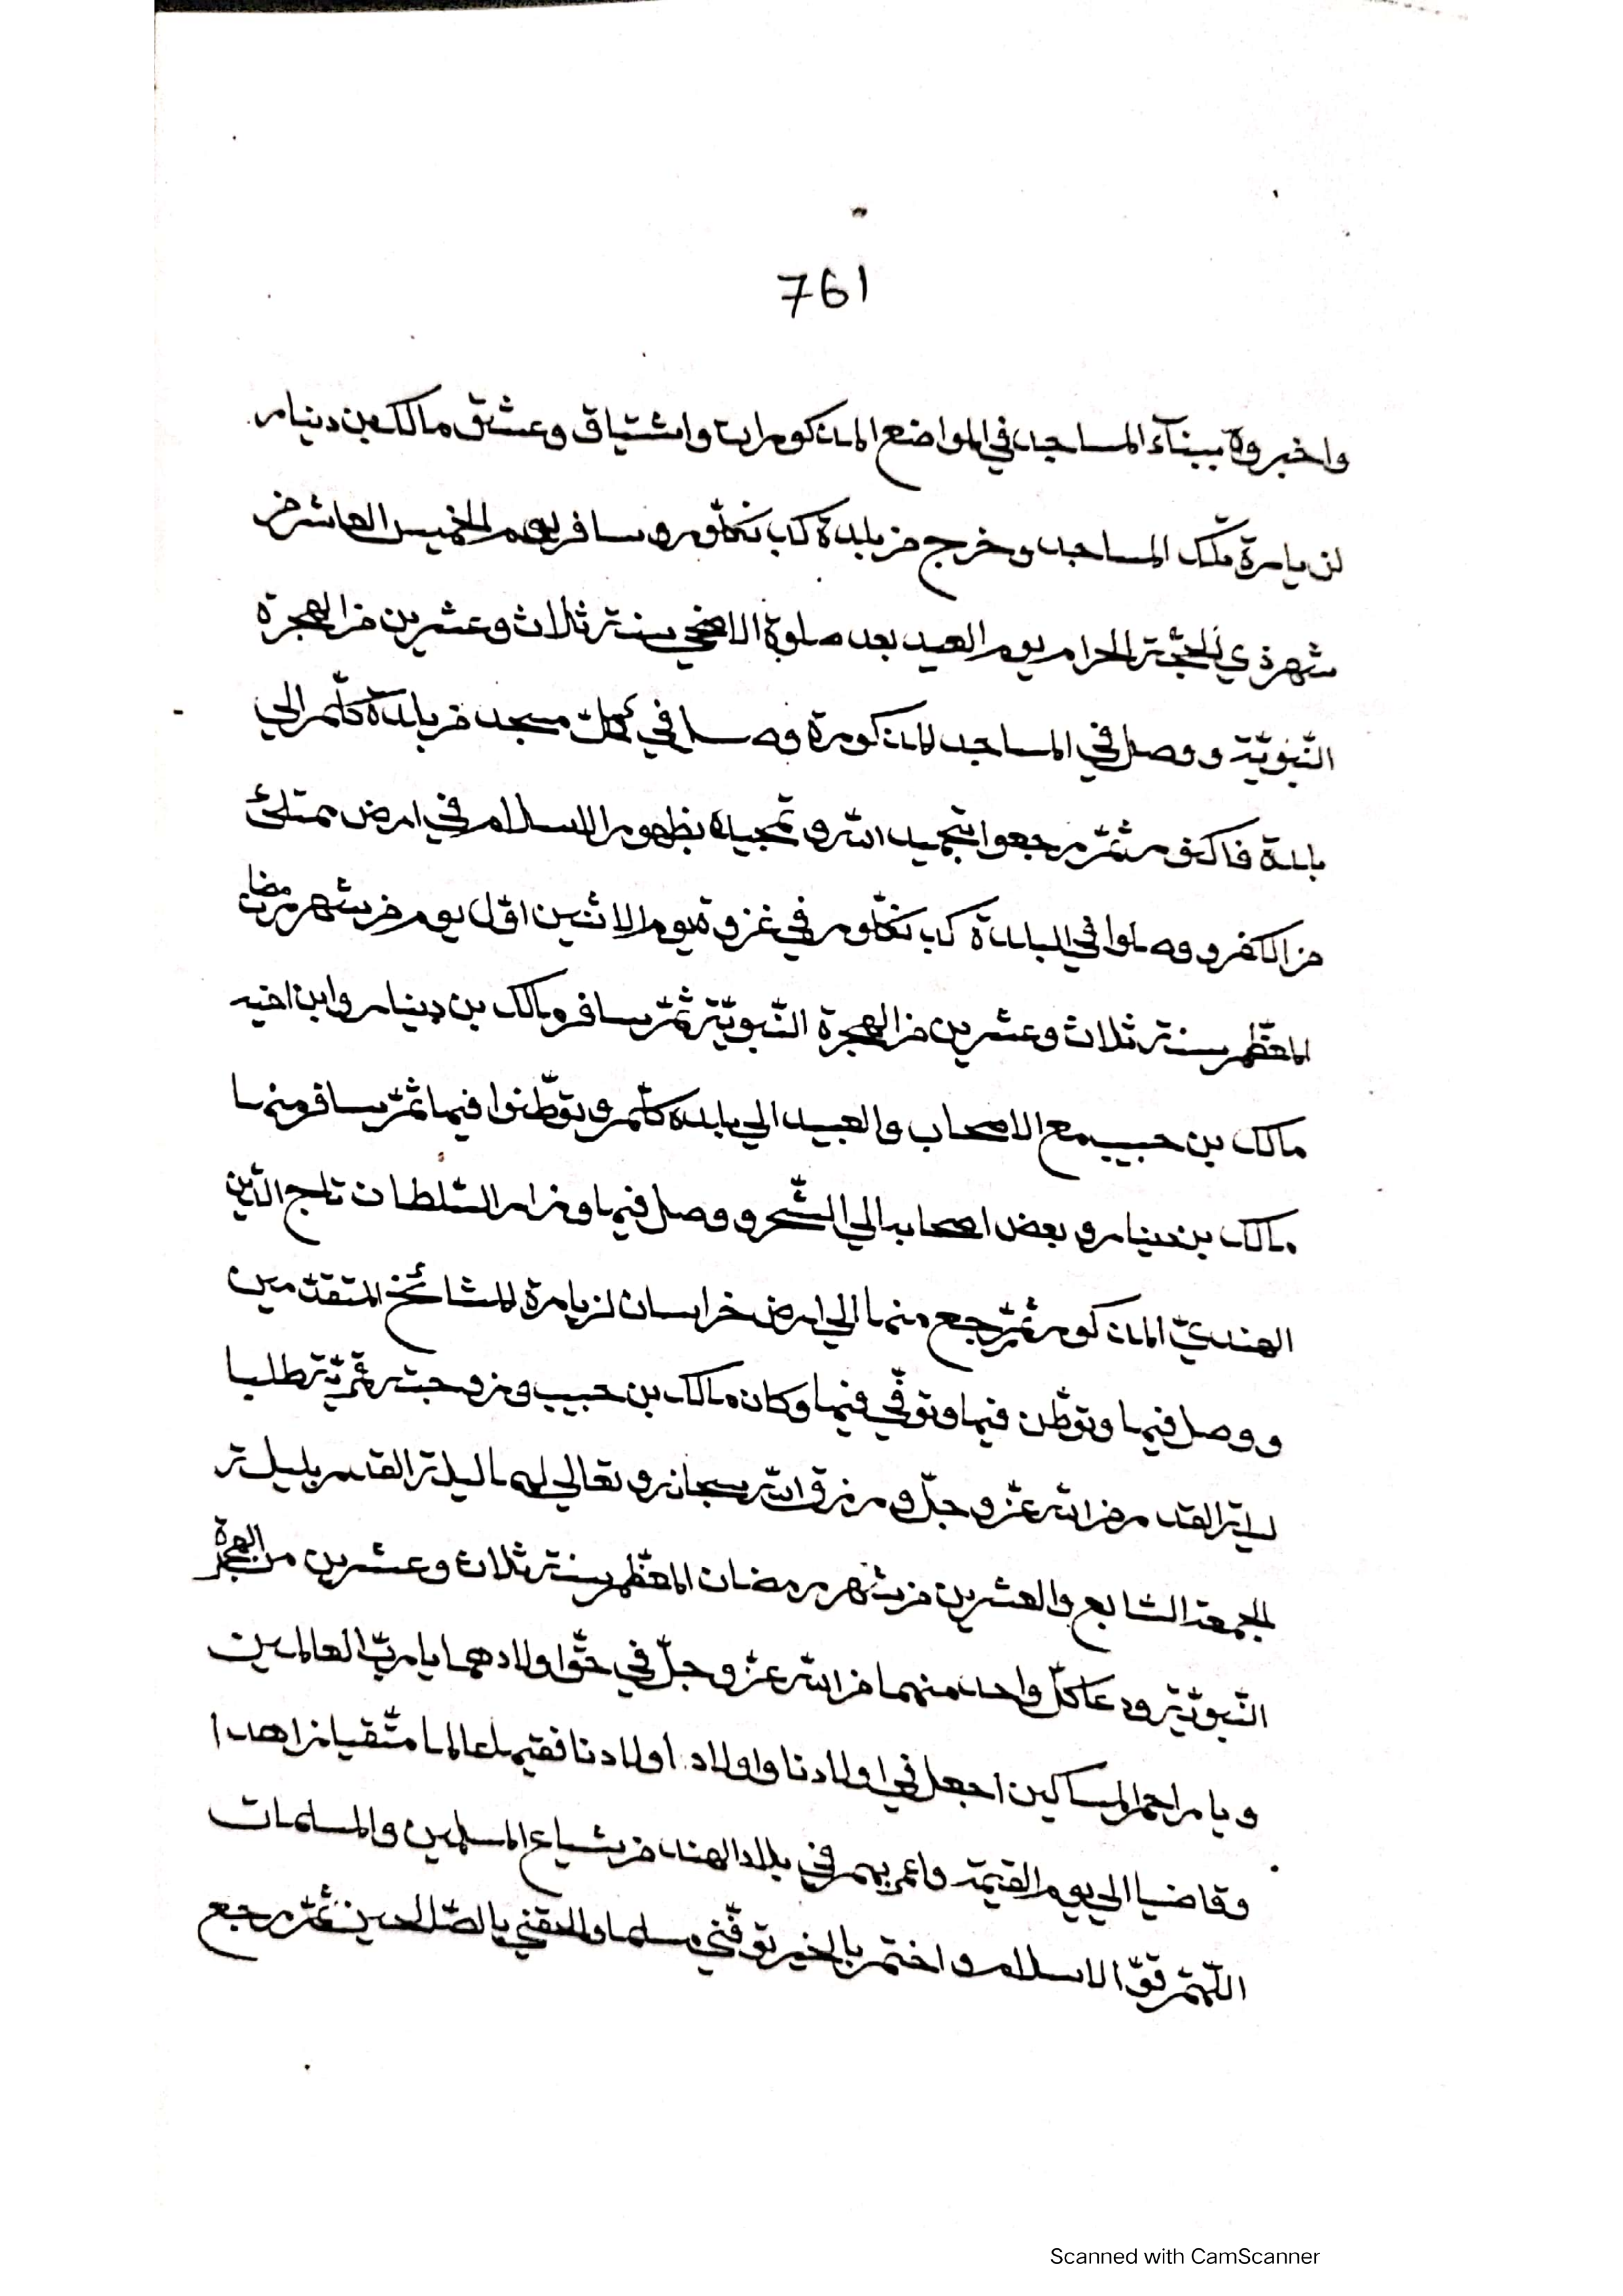 761
واخبروه ببنآء المساجد في المواضع المذكورات واشتياق وعشق مالك بن دينار
لزيارة تلك المساجد وخرج من بلدة كدنكلور وسافر يوم الخميس العاشر من
شهر ذي الحجّة الحرام يوم العيد بعد صلوة الاضحي سنة ثلاث وعشرين من الهجرة
النّبويّة ووصل في المساجد المذكورة وصلي في كلّ مسجد من بلدة كلّم الي
بلدة فاكنور ثمّ رجعوا بتحميد الله وتمجيده بظهور الاسلام في ارض ممتلئ
من الكفر ووصلوا في البلدة كدنكلور في غزوة يوم الاثنين اوّل يوم من شهر رمضان
المعظّم سنة ثلاث وعشرين من الهجرة النّبويّة ثمّ سافر مالك بن دينار وابن اخيه
مالك بن حبيب مع الاصحاب والعبيد الي بلدة كلّم وتوطّنوا فيها ثمّ سافر منها
مالك بن دينار وبعض اصحابه الي الشّحر ووصل فيها وزار السّلطان تاج الدّين
الهنديّ المذكور ثمّ رجع منها الي ارض خراسان لزيارة المشائخ المتقدّمين
ووصل فيها وتوطّن فيها وتوفّي فيها وكان مالك بن حبيب وزوجته قمريّة طلبا
ليلة القدر من الله عزّ وجلّ ورزق الله سبحانه وتعالي لهما ليلة القدر بليلة
الجمعة السّابع والعشرين من شهر رمضان المعظّم سنة ثلاث وعشرين من الهجرة
النّبويّة ودعا كلّ واحد منهما من الله عزّ وجلّ في حقّ اولادهما يا ربّ العالمين
ويا راحم المساكين اجعل في اولادنا واولاد اولادنا فقيها عالما متّقيا زاهدا
وقاضيا الي يوم القيمة واعمر بهم في بلاد الهند من شياع المسلمين والمسلمات
اللّهمّ قوّ الاسلام واختم بالخير توفّني مسلما والحقني بالصّالحين ثمّ رجع
Scanned with CamScanner